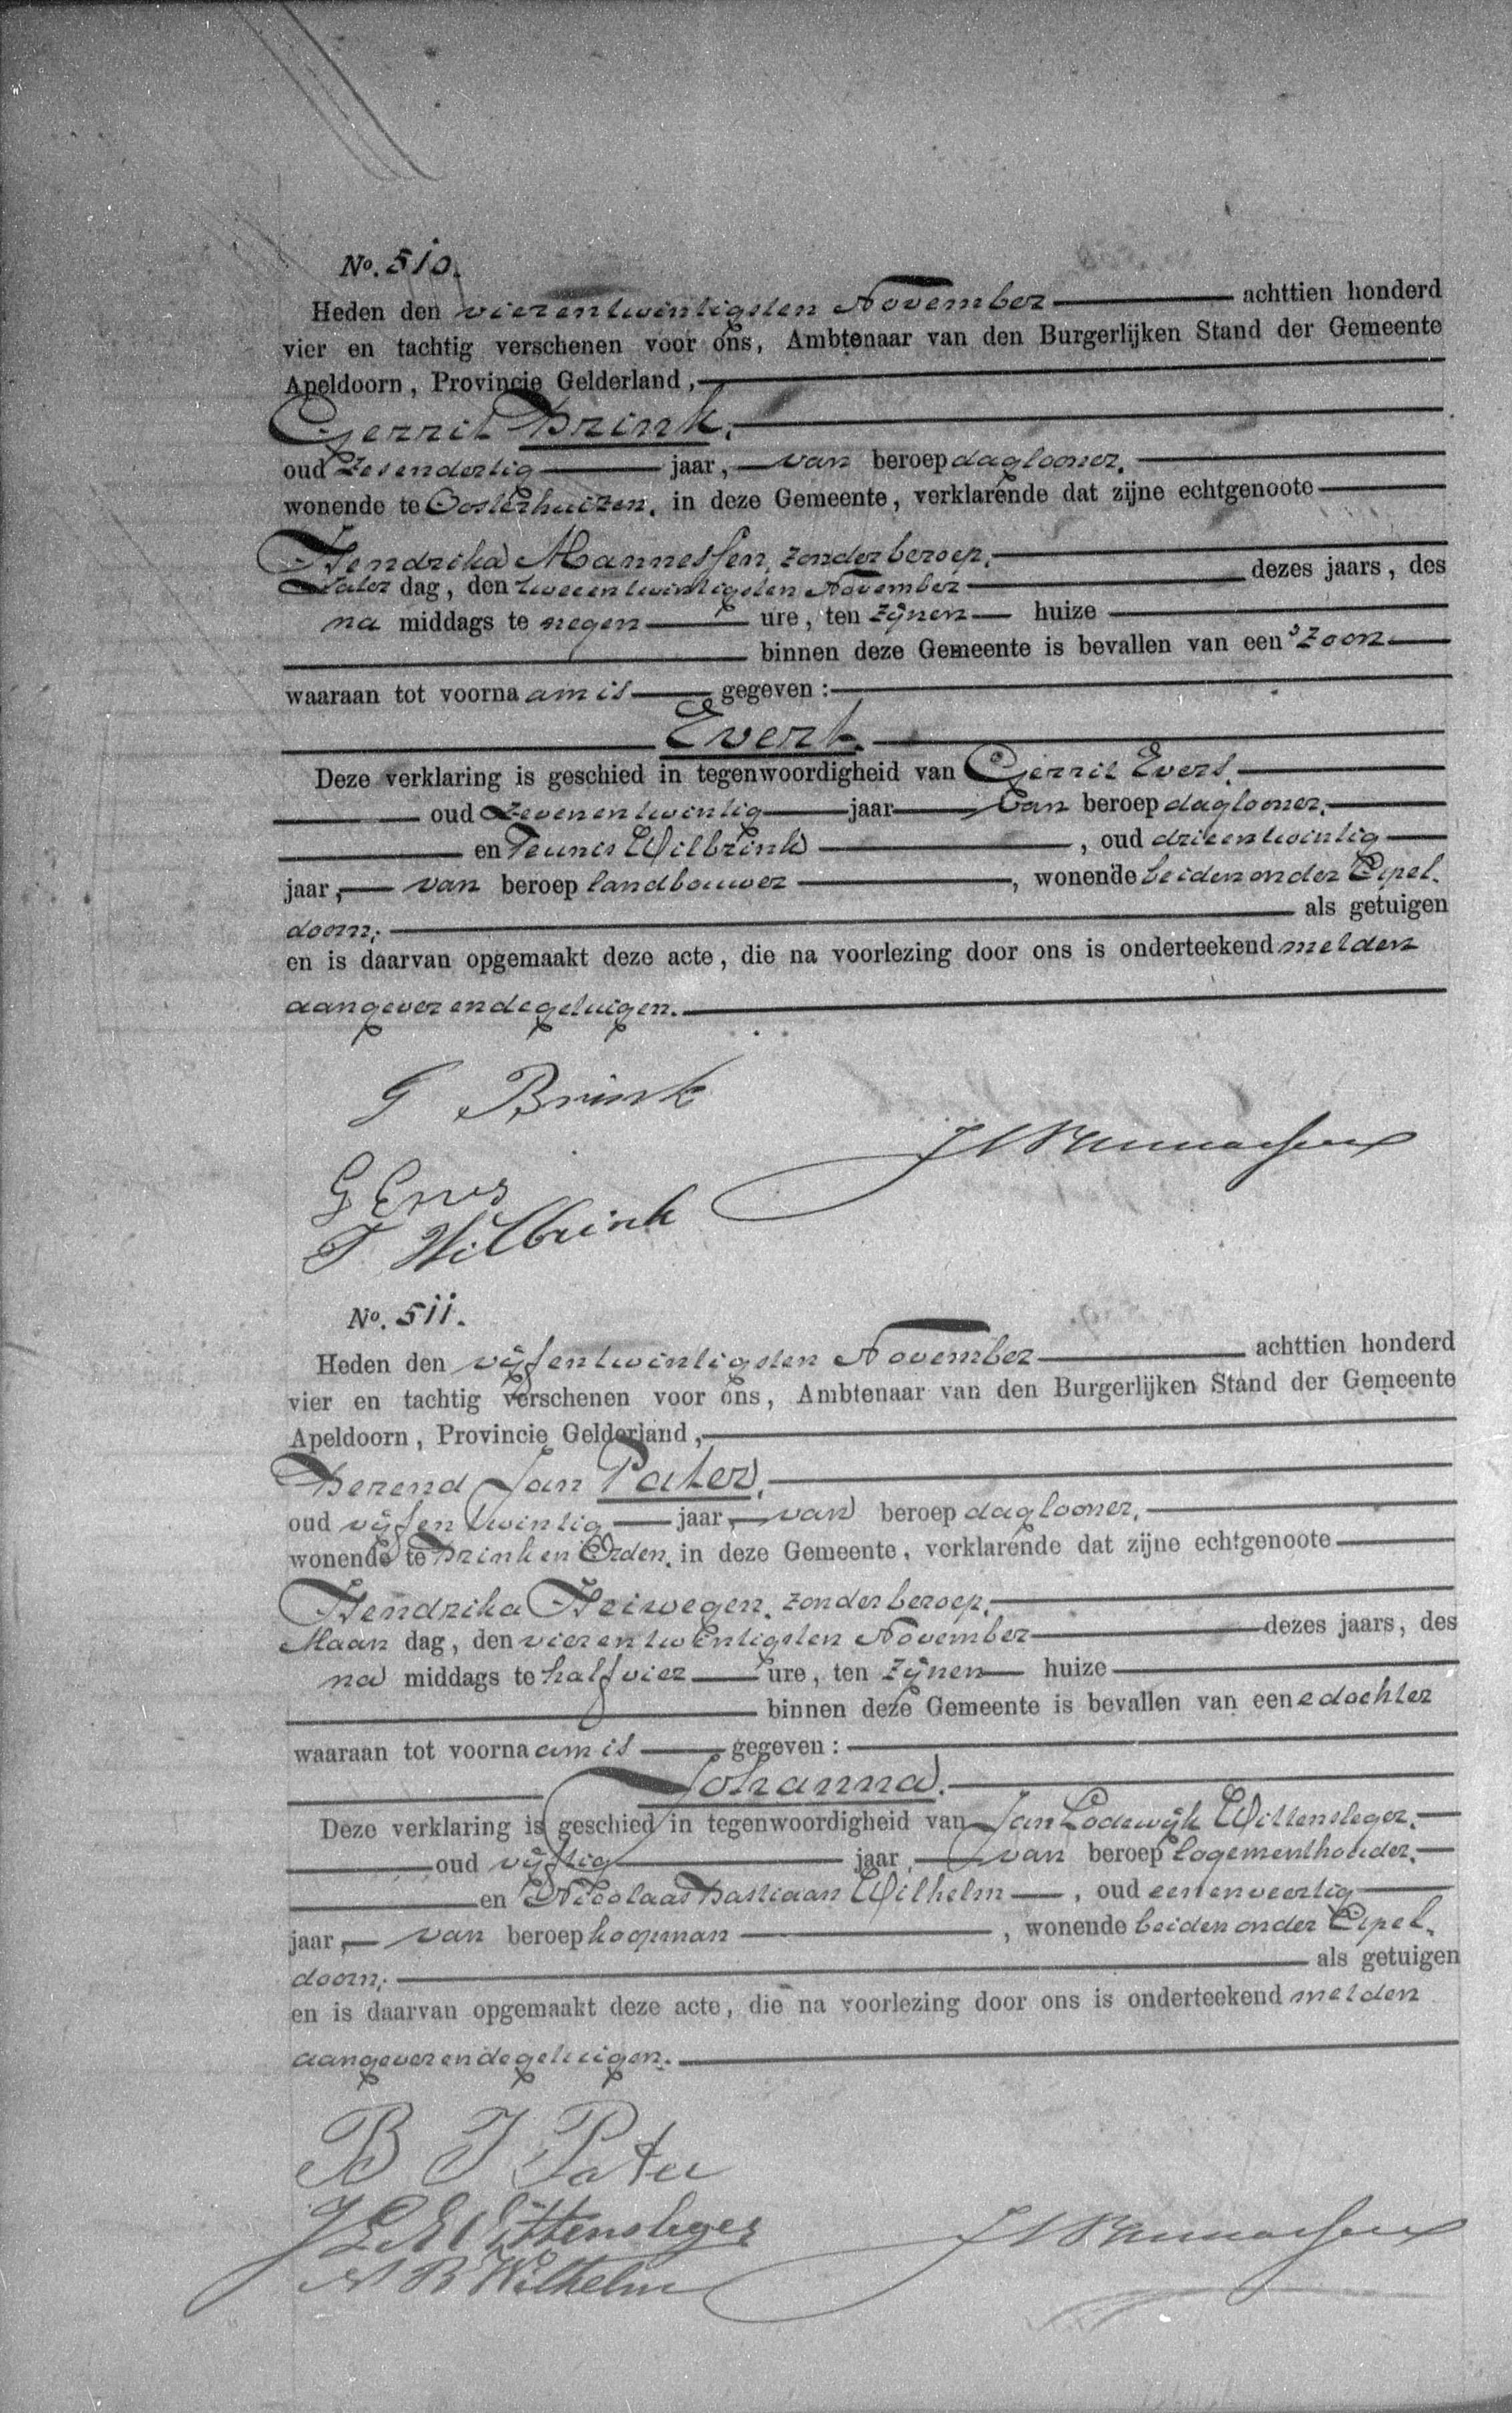 No. 510.
Heden den vierentwintigsten November achttien honderd
vier en tachtig verschenen voor ons, Ambtenaar van den Burgerlijken Stand der Gemeente
Apeldoorn, Provincie Gelderland,
Gerrit Brink,
oud zesendertig jaar, van beroep daglooner,
wonende te Oosterhuizen, in deze Gemeente, verklarende dat zijne echtgenoote
Hendrika Mannessen, zonder beroep,
Zater dag, den tweeentwintigsten November dezes jaars, des
na middags te negen ure, ten zijnen huize
binnen deze Gemeente is bevallen van een zoon
waaraan tot voornaam is gegeven:
Evert.
Deze verklaring is geschied in tegenwoordigheid van Gerrit Evers,
oud zevenentwintig jaar van beroep daglooner,
en Teunis Wilbrink, oud drieentwintig
jaar, van beroep landbouwer, wonende beiden onder Apel-
doorn, als getuigen
en is daarvan opgemaakt deze acte, die na voorlezing door ons is onderteekend met den
aangever en de getuigen.
G Brink
G Evers
T Wilbrink
No. 511.
Heden den vijfentwintigsten November achttien honderd
vier en tachtig verschenen voor ons, Ambtenaar van den Burgerlijken Stand der Gemeente
Apeldoorn, Provincie Gelderland,
Berend Jan Pater,
oud vijfentwintig jaar, van beroep daglooner,
wonende te Brink en Orden, in deze Gemeente, verklarende dat zijne echtgenoote
Hendrika Heiwegen, zonder beroep,
Maan dag, den vierentwintigsten November dezes jaars, des
na middags te half vier ure, ten zijnen huize
binnen deze Gemeente is bevallen van eene dochter
waaraan tot voornaam is gegeven:
Johanna.
Deze verklaring is geschied in tegenwoordigheid van Jan Lodewijk Wittensleger,
oud vijftig jaar, van beroep logementhouder,
en Nicolaas Bastiaan Wilhelm, oud eenenveertig
jaar, van beroep koopman, wonende beiden onder Apel-
doorn, als getuigen
en is daarvan opgemaakt deze acte, die na voorlezing door ons is onderteekend met den
aangever en de getuigen.
B J Pater
J L Wittensleger
N B Wilhelm